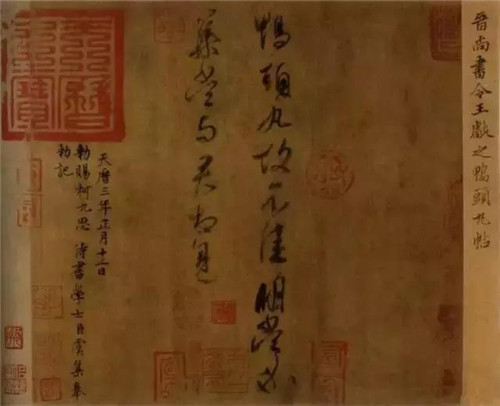 晉尚書令王獻之鴨頭丸帖
鴨頭丸故不佳明當必
集當與君相見
天曆三年正月十二日
勑賜柯九思 侍書學士臣虞集奉
勑記
天曆之寶